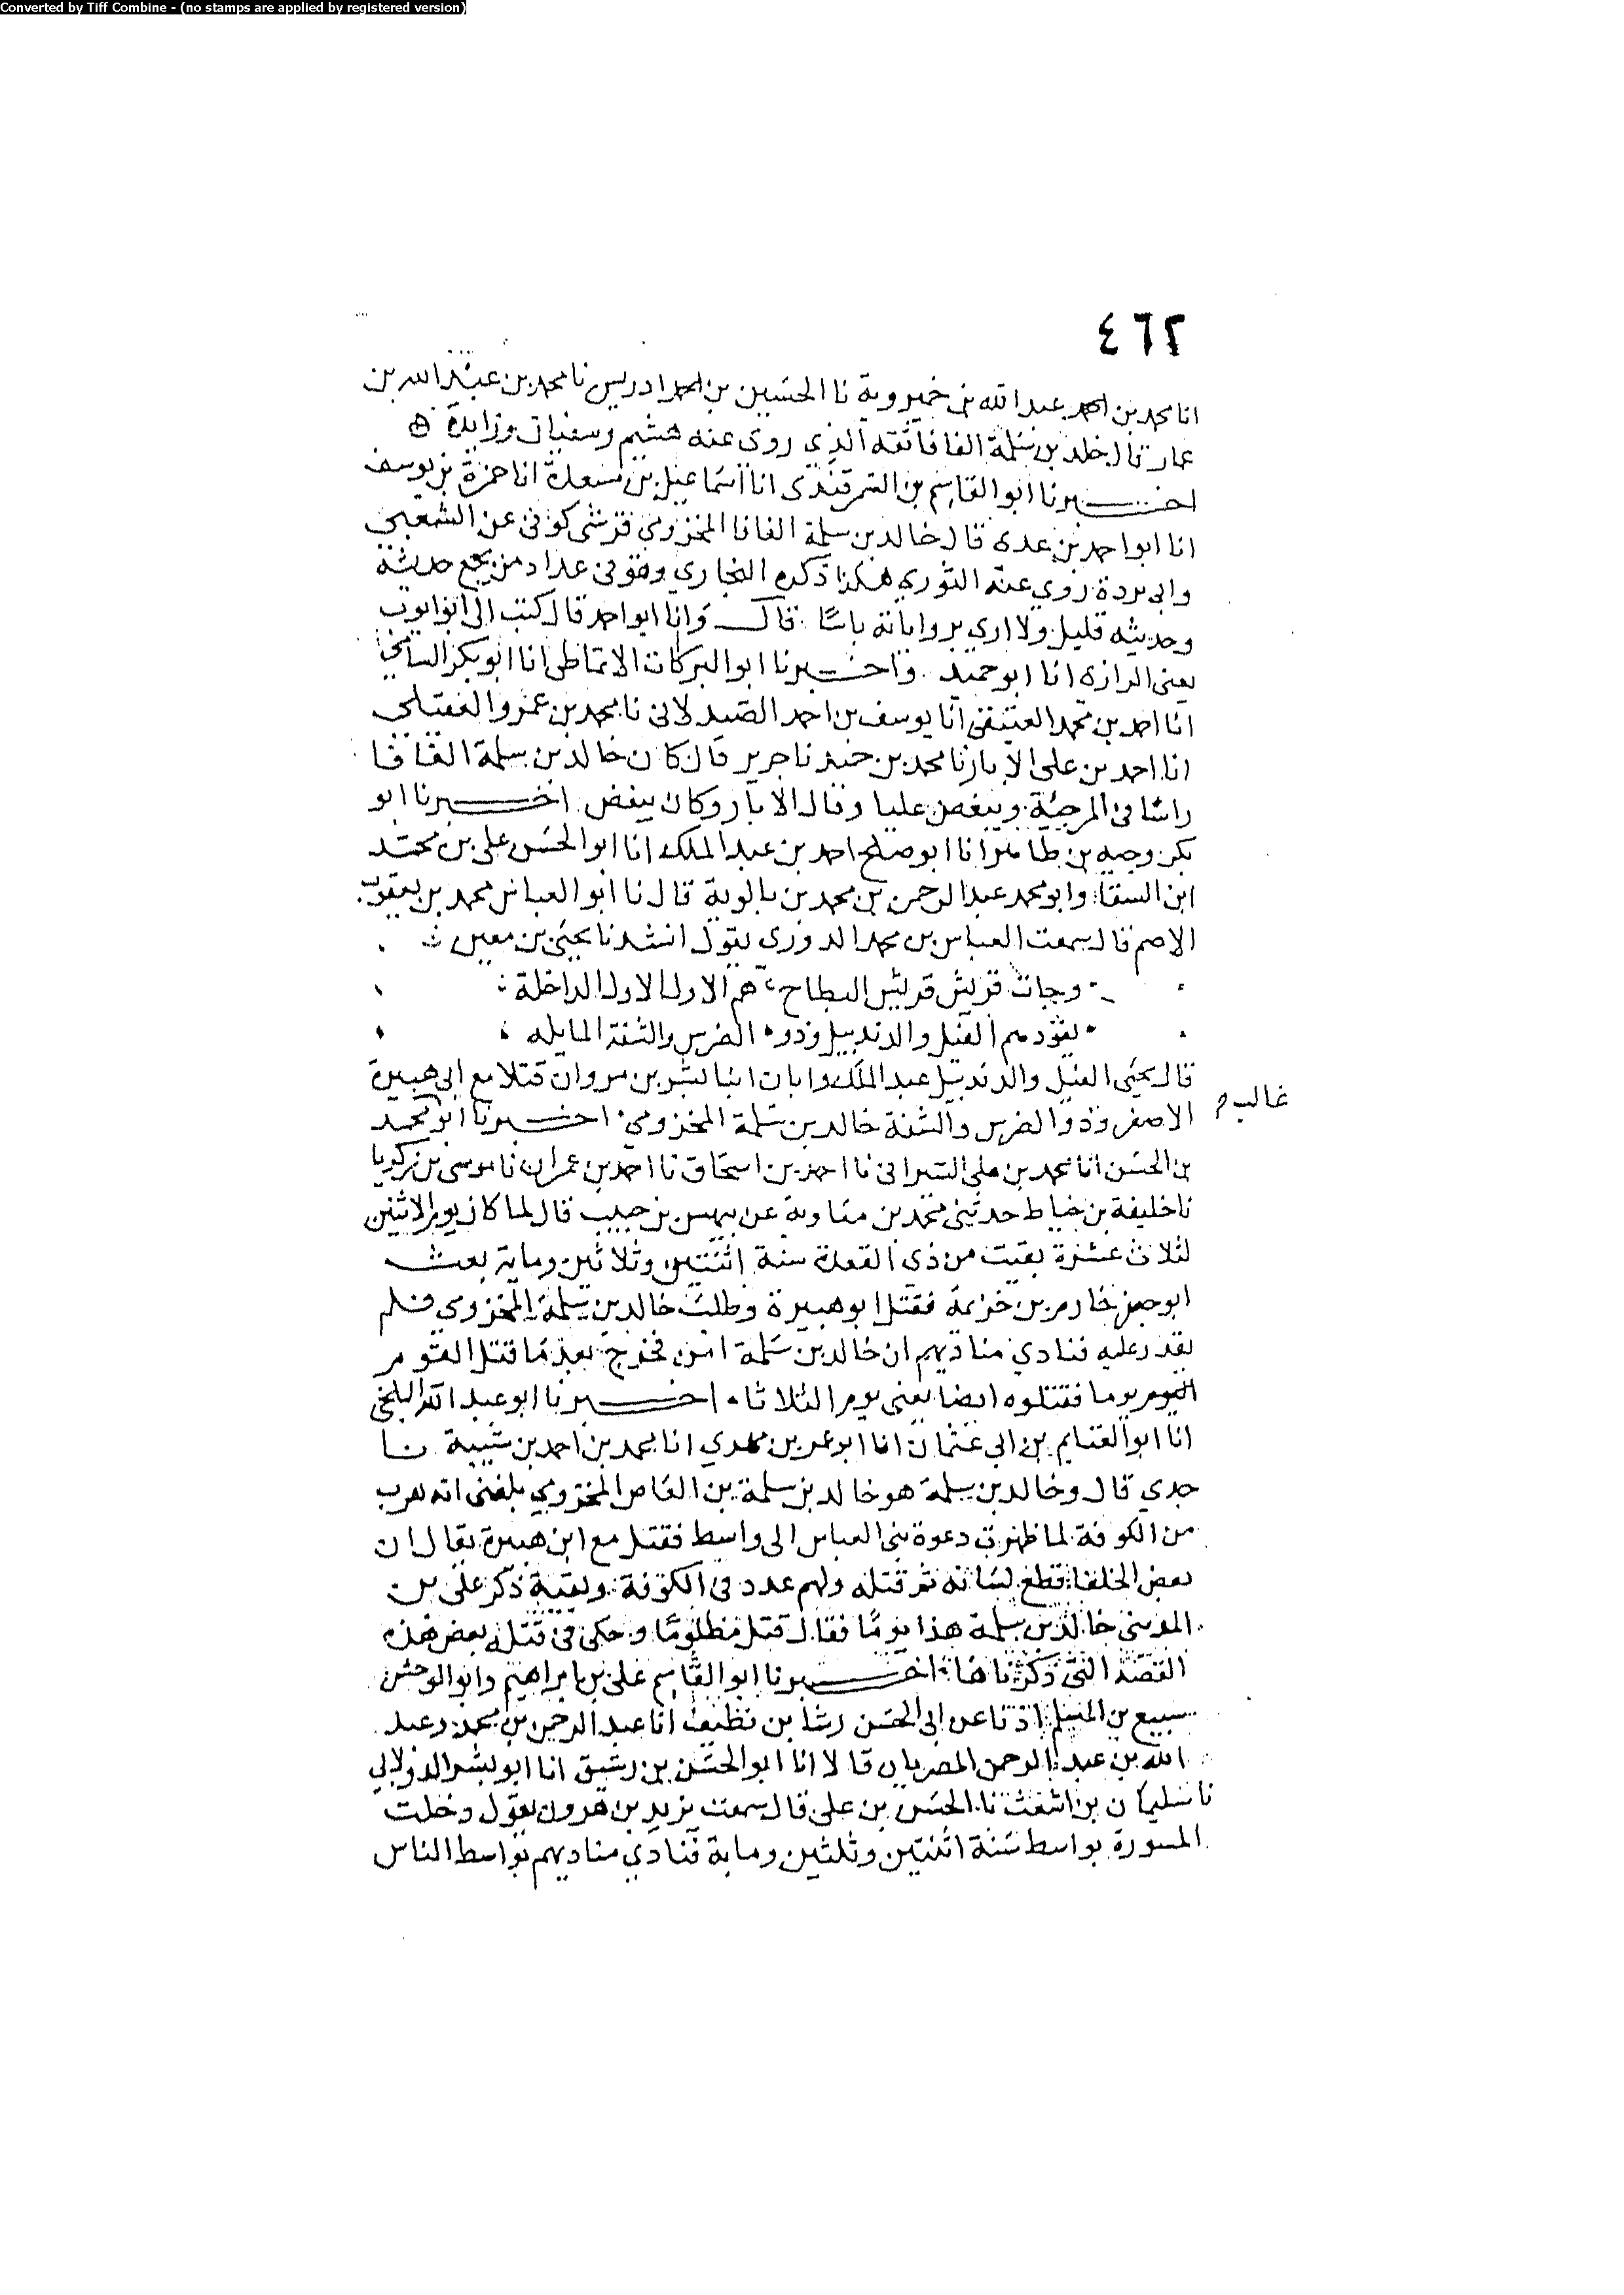 Converted by Tiff Combine - (no stamps are applied by registered version)
٤٦٢
انا محمد بن احمد عبد الله بن خميروية نا الحسين بن احمد ادريس نا محمد بن عبد الله بن
عمار قال خلد بن سلمة الفافا ثقه الذي روى عنه هشيم وسفيان وزايدة
اخبرنا ابو القاسم بن السمرقندى انا اسماعيل بن مسعدة انا حمزة بن يوسف
انا ابو احمد بن عدى قال خالد بن سلمة الفافا المخزومي قرشى كوفى عن الشعبي
وابى بردة روي عنه الثوري هكذا ذكره البخاري وهو فى عداد من يجمع حديثه
وحديثه قليل ولا ارى برواياته باسًا قال وانا ابو احمد قال كتب الى ابو ايوب
يعنى الرازى انا ابو حميد واخبرنا ابو البركات الانماطى انا ابو بكر الشامي
انا احمد بن محمد العتيقى انا يوسف بن احمد الصيدلانى نا محمد بن عمرو العقيلي
انا احمد بن على الابار نا محمد بن حميد نا جرير قال كان خالد بن سلمة الفافا
راسًا فى المرجئة ويبغض عليا وقال الابار وكان يبغض اخبرنا ابو
بكر وجيه بن طاهر انا ابو صالح احمد بن عبد الملك انا ابو الحسن على بن محمد
ابن السقا وابو محمد عبد الرحمن بن محمد بن بالوية قال نا ابو العباس محمد بن يعقوب
الاصم قال سمعت العباس بن محمد الدوري يقول انشدنا يحيى بن معين
وجات قريش قريش البطاح هم الاول الاول الداخلة
يقودهم الفيل والزندبيل وذو الضرس والشفة المايله
قال يحيى الفيل والزندبيل عبد الملك وابان ابنا بشر بن مروان قتلا مع ابى هبيرة
الاصغر وذو الضرس والشفة خالد بن سلمة المخزومي اخبرنا ابو محمد
غالب م
بن الحسن انا محمد بن على السيرافى نا احمد بن اسحاق نا احمد بن عمران نا موسى بن زكريا
نا خليفة بن خياط حدثني محمد بن معاوية عن بيهس بن حبيب قال لما كان يوم الاثنين
لثلاث عشرة بقيت من ذى القعدة سنة اثنتين وثلاثين وماية بعث
ابو جعفر خازم بن خزيمة فقتل ابو هبيرة وطلب خالد بن سلمة المخزومي فلم
يقدر عليه فنادي مناديهم ان خالد بن سلمة امن فخرج بعد ما قتل القوم
اليوم يوما فقتلوه ايضا يعنى يوم الثلاثا اخبرنا ابو عبد الله البلخى
انا ابو الغنايم بن ابى عثمان انا ابو عمر بن مهدي انا محمد بن احمد بن شيبة نا
جدي قال وخالد بن سلمة هو خالد بن سلمة بن العاص المخزومي بلغنى انه هرب
من الكوفة لما ظهرت دعوة بنى العباس الى واسط فقتل مع ابن هبيرة يقال ان
بعض الخلفا قطع لسانه ثم قتله ولهم عدد فى الكوفة وبقية ذكر على بن
المدينى خالد بن سلمة هذا يومًا فقال قتل مظلومًا وحكى فى قتله بعض هذه
القصة التى ذكرناها اخبرنا ابو القاسم على بن ابراهيم وابو الوحش
سبيع بن المسلم اذنا عن ابى الحسن رشا بن نظيف انا عبد الرحمن بن محمد وعبد
الله بن عبد الرحمن المصريان قالا انا ابو الحسن بن رشيق انا ابو بشر الدولابي
نا سليمان بن اشعث نا الحسن بن على قال سمعت يزيد بن هرون يقول دخلت
المسورة بواسط سنة اثنتين وثلثين وماية فنادي مناديهم بواسط الناس